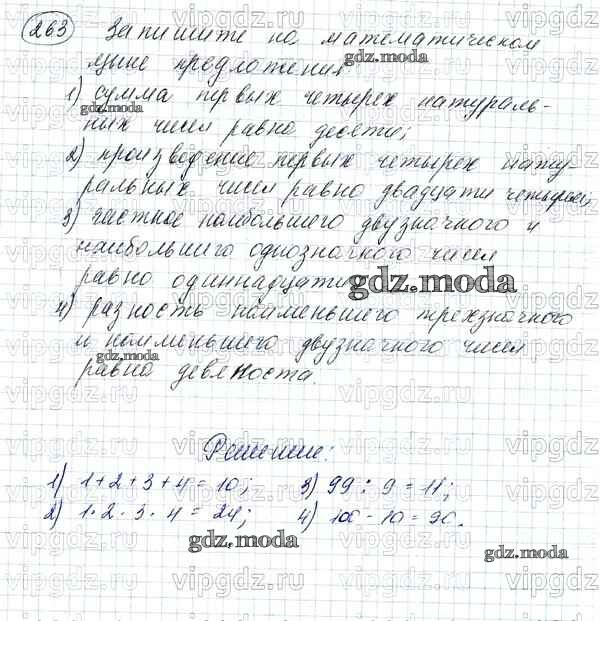 263 Запишите на математическом
языке предложения
1) сумма первых четырех натураль-
ных чисел равна десяти;
2) произведение первых четырех нату
ральных чисел равно двадцати четырем;
3) частное наибольшего двузначного и
наибольшего однозначного чисел
равно одиннадцати
4) разность наименьшего трехзначного
и наименьшего двузначного чисел
равна девяноста.
Решение:
1) 1+2+3+4=10; 3) 99:9=11;
2) 1·2·3·4=24; 4) 100-10=90.
gdz.moda
vipgdz.ru